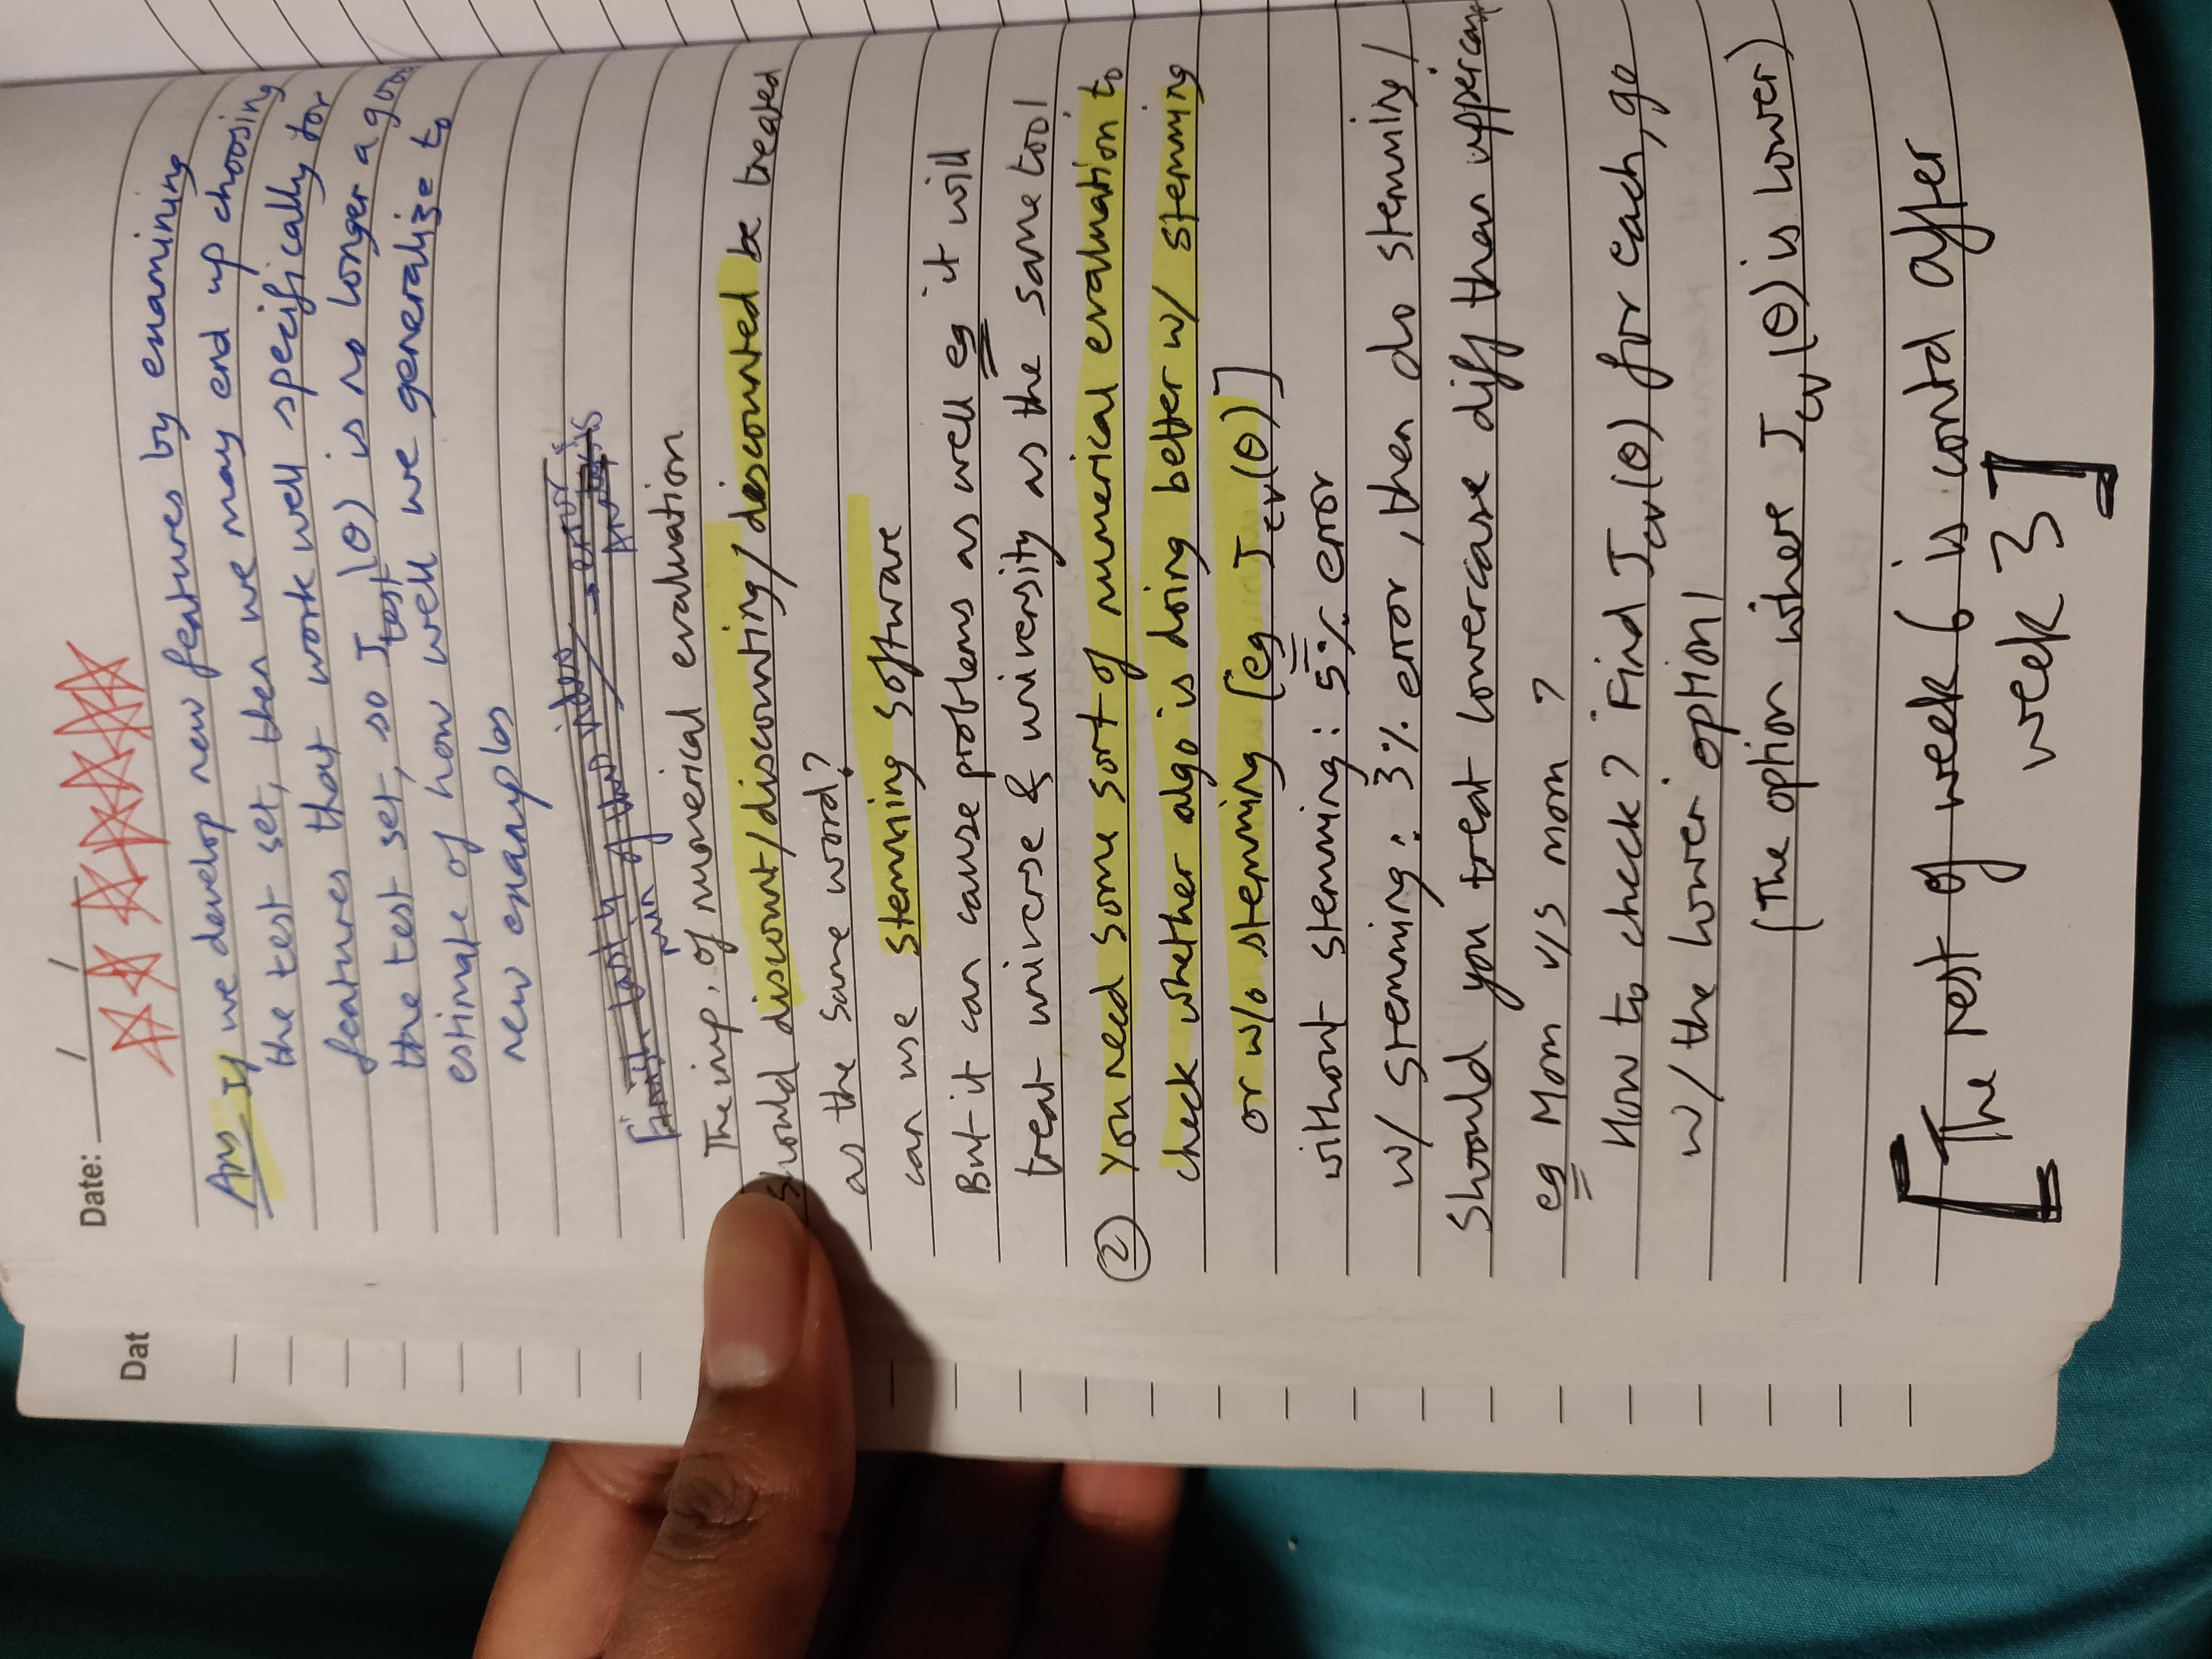 Date: / /
Dat
Ans If we develop new features by examining
the test set, then we may end up choosing
features that work well specifically for
the test set, so J_test(θ) is no longer a good
estimate of how well we generalize to
new examples
Finish last 4 min of this video → error Analysis
The imp. of numerical evaluation
Should discount/discounting/discounted be treated
as the same word?
can use stemming software
But it can cause problems as well eg it will
treat universe & university as the same too!
② You need some sort of numerical evaluation to
check whether algo is doing better w/ stemming
or w/o stemming [eg J_cv(θ)]
without stemming: 5% error
w/ stemming: 3% error, then do stemming!
Should you treat lowercase diff than uppercase
eg Mom v/s mom ?
How to check? Find J_cv(θ) for each, go
w/ the lower option!
(The option where J_cv(θ) is lower)
[The rest of week 6 is contd after
week 3]